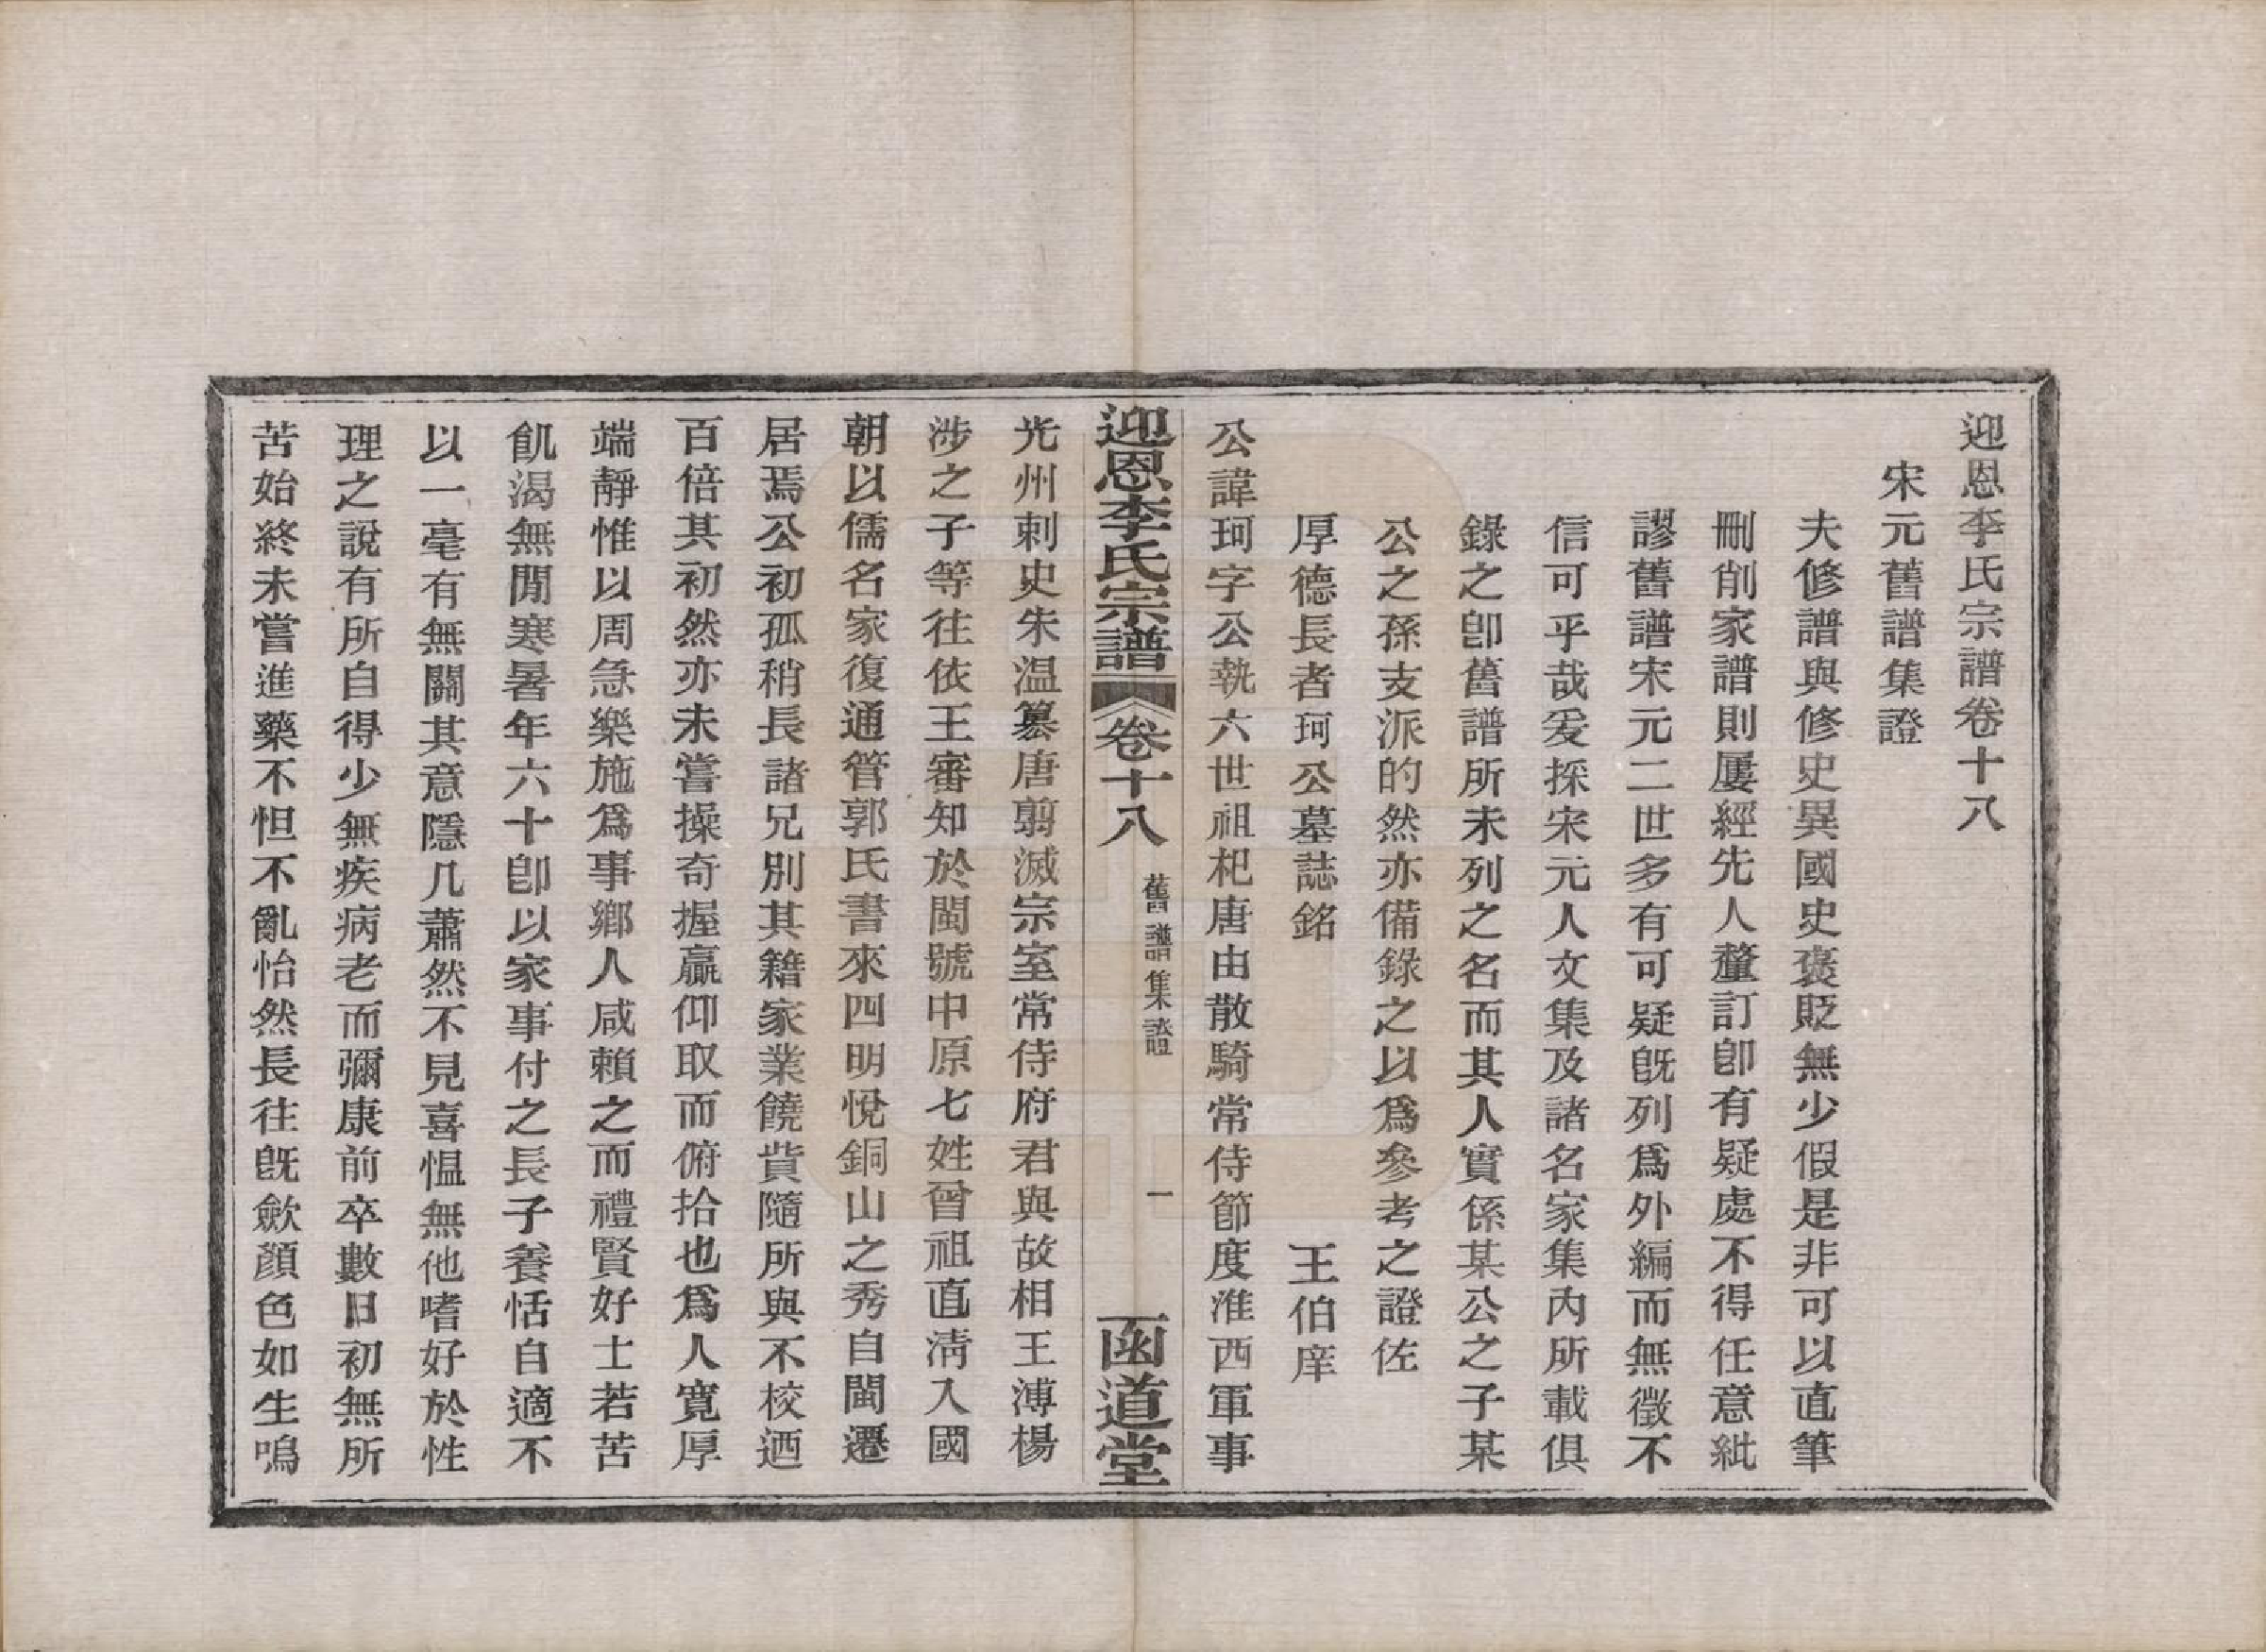 迎恩李氏宗譜卷十八
宋元舊譜集證
夫修譜與修史異國史褒貶無少假是非可以直筆
刪削家譜則屢經先人釐訂卽有疑處不得任意紕
謬舊譜宋元二世多有可疑旣列爲外編而無徵不
信可乎哉爰採宋元人文集及諸名家集內所載俱
錄之卽舊譜所未列之名而其人實係某公之子某
公之孫支派的然亦備錄之以爲參考之證佐
厚德長者珂公墓誌銘 王伯庠
公諱珂字公執六世祖杞唐由散騎常侍節度淮西軍事
迎恩李氏宗譜 卷十八 舊譜集證 一 函道堂
光州刺史朱溫篡唐翦滅宗室常侍府君與故相王溥楊
涉之子等往依王審知於閩號中原七姓曾祖直淸入國
朝以儒名家復通管郭氏書來四明悅銅山之秀自閩遷
居焉公初孤稍長諸兄別其籍家業饒貲隨所與不校迺
百倍其初然亦未嘗操奇握贏仰取而俯拾也爲人寬厚
端靜惟以周急樂施爲事鄉人咸賴之而禮賢好士若苦
飢渴無閒寒暑年六十卽以家事付之長子養恬自適不
以一毫有無關其意隱几蕭然不見喜慍無他嗜好於性
理之說有所自得少無疾病老而彌康前卒數日初無所
苦始終未嘗進藥不怛不亂怡然長往旣歛顏色如生嗚